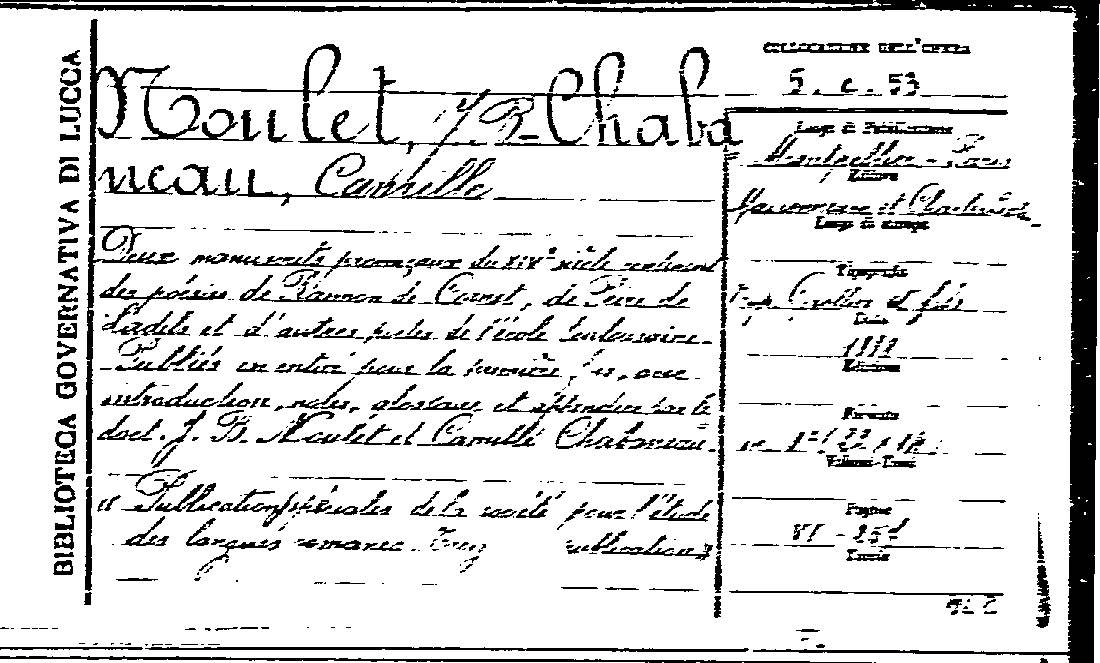 BIBLIOTECA GOVERNATIVA DI LUCCA
Noulet, J. B. - Chaba
neau, Camille
Deux manuscrits provençaux du XIVe siècle contenant
des poésies de Ramon de Cornet, de Peire de
Ladils et d'autres poètes de l'école toulousaine.
Publiés en entier pour la première fois, avec
introduction, notes, glossaire et appendice par le
doct. J. B. Noulet et Camille Chabaneau.
" Publications spéciales de la société pour l'étude
des langues romanes. publication "
COLLOCAZIONE DELL'OPERA
5. c. 53
Luogo di Pubblicazione
Montpellier - Paris
Editore
Maisonneuve et
Luogo di stampa
Tipografia
et fils
Data
Edizione
Formato
Volumi-Tomi
Pagine
VI -
Tavole